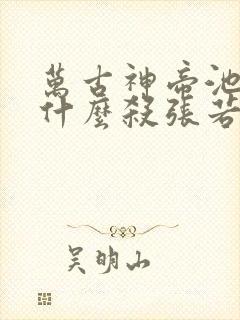 萬古神帝池
什麼殺張若
吳明山